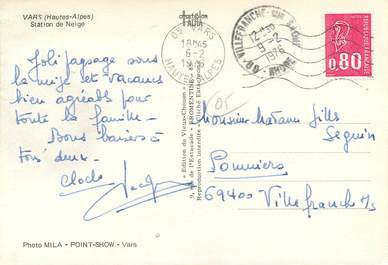 VARS (Hautes-Alpes)
Station de Neige
Joli paysage sous
la neige et vacances
bien agréables pour
toute la famille -
Bons baisers à
tous deux -
05 VARS
18H45
6-2
1976
HAUTES-ALPES
VILLEFRANCHE-SUR-SAONE
9-2
1976
69 RHONE
0,80
05
Monsieur Madame Gilles
Seguin
Pommiers
69400 Villefranche s/s
Edition du Vieux-Chouan - FROMENTINE
9, rue de l'Estacade
Reproduction interdite
Photo MILA - POINT-SHOW - Vars